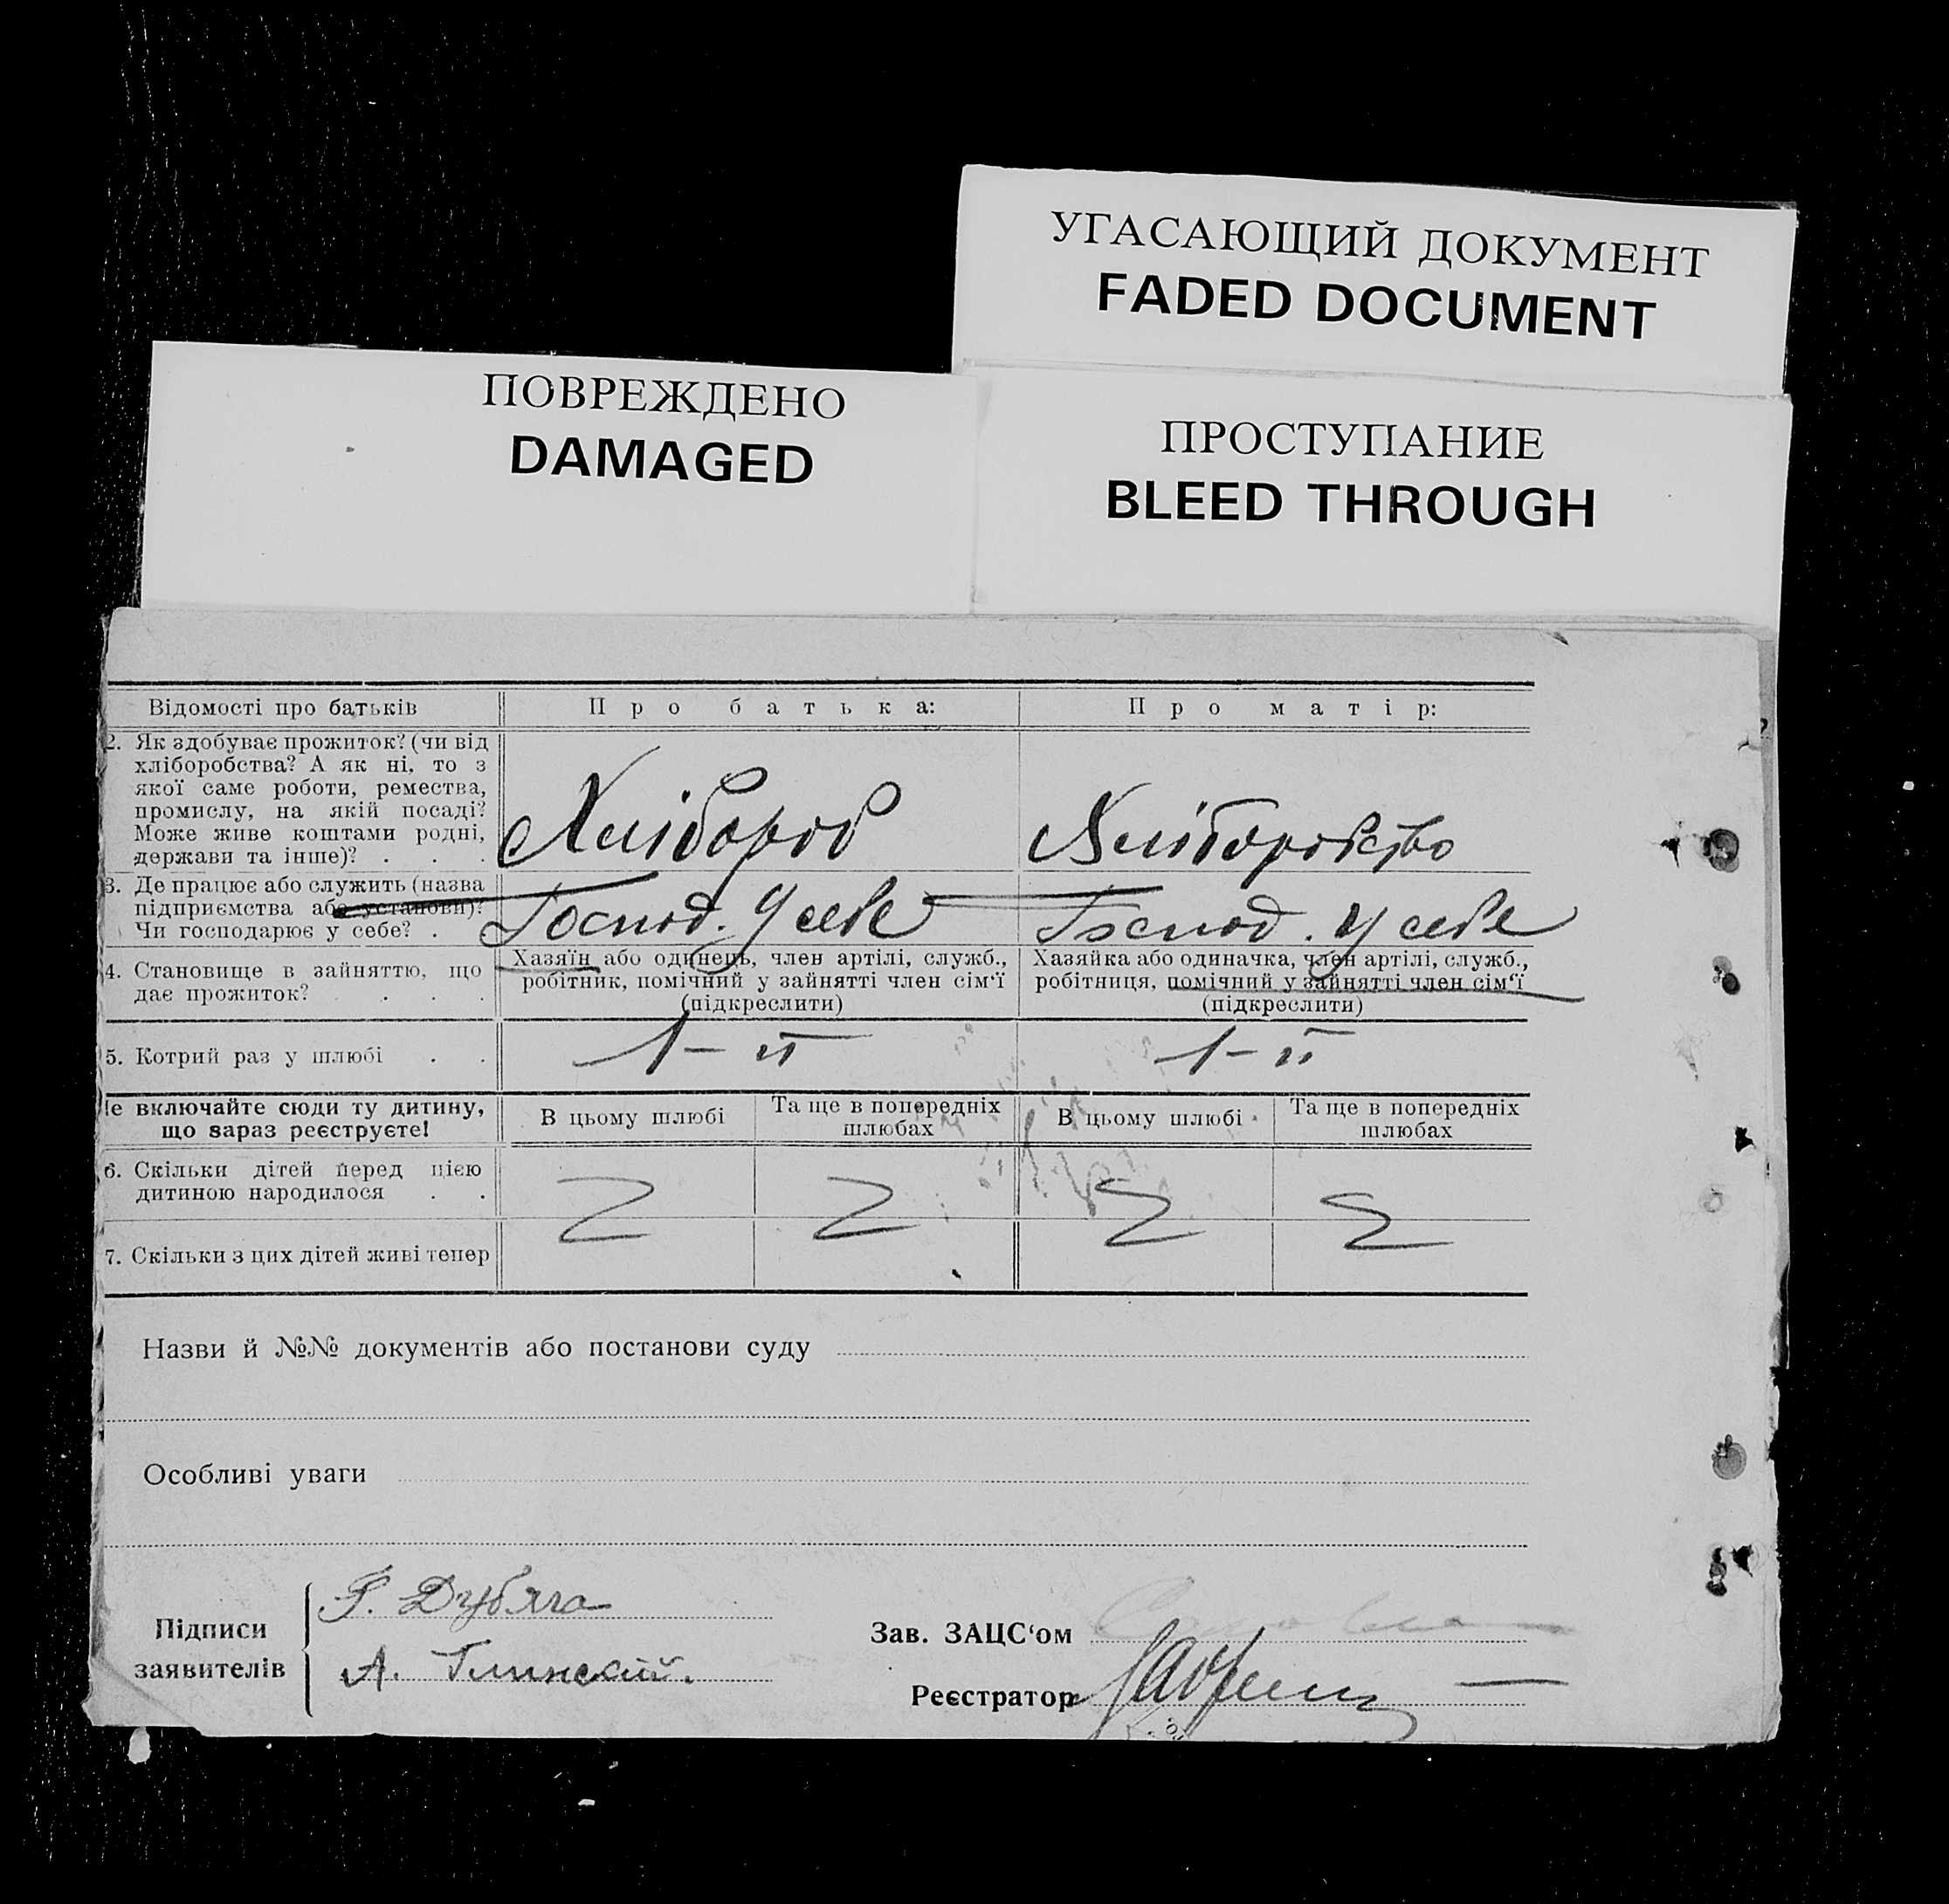 УГАСАЮЩИЙ ДОКУМЕНТ
FADED DOCUMENT
ПОВРЕЖДЕНО
DAMAGED
ПРОСТУПАНИЕ
BLEED THROUGH
Відомості про батьків
Про батька:
Про матір:
2. Як здобуває прожиток? (чи від
хліборобства? А як ні, то з
якої саме роботи, ремества,
промислу, на якій посаді?
Може живе коштами родні,
держави та інше)? . . .
Хлібороб
Хліборобство
3. Де працює або служить (назва
підприємства або установи)?
Чи господарює у себе? .
Господ. У себе
Господ. У себе
4. Становище в зайняттю, що
дає прожиток? . . . .
Хазяїн або одинець, член артілі, служб.,
робітник, помічний у зайнятті член сім'ї
(підкреслити)
Хазяйка або одиначка, член артілі, служб.,
робітниця, помічний у зайнятті член сім'ї
(підкреслити)
5. Котрий раз у шлюбі . .
1-й
1-й
Не включайте сюди ту дитину,
що зараз реєструєте!
В цьому шлюбі
Та ще в попередніх
шлюбах
В цьому шлюбі
Та ще в попередніх
шлюбах
6. Скільки дітей перед цією
дитиною народилося . .
7. Скільки з цих дітей живі тепер
Назви й №№ документів або постанови суду
Особливі уваги
Підписи
заявителів
Г. Дубяга
А. Глинский.
Зав. ЗАЦС'ом
Реєстратор